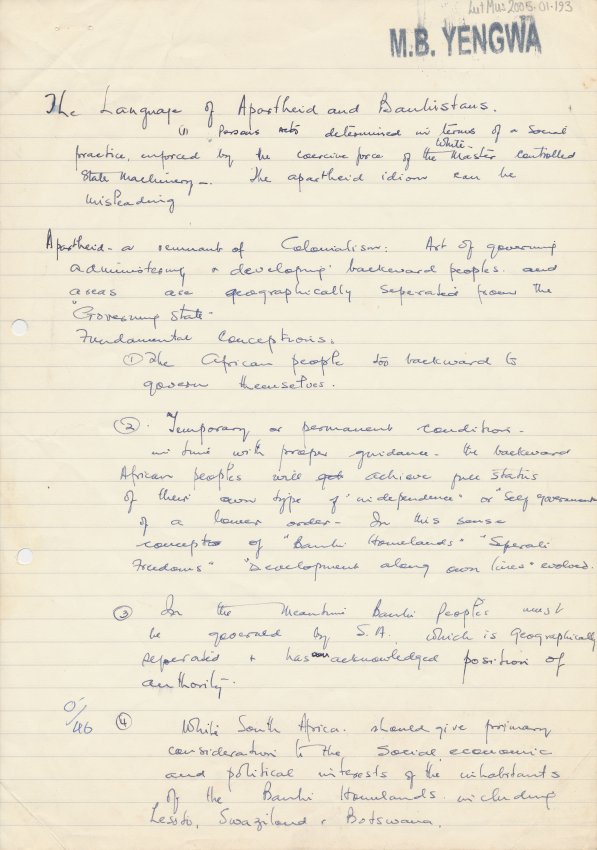 LutMus 2005.01-193
M.B. YENGWA
The Language of Apartheid and Bantustans.
(1) "Persons acts determined in terms of a Social
practice, enforced by the coercive force of the White-Master controlled
State Machinery -. The apartheid idiom can be
misleading
Apartheid - a remnant of Colonialism: Art of governing
administering + developing backward peoples. and
areas are geographically seperated from the
"Governing State"
Fundamental Conceptions:
① The African people too backward to
govern themselves.
②. Temporary or permanent condition -
in time with proper guidance - the backward
African peoples will get achieve full status
of their own type of "independence" or "Self government
of a lower order - In this sense
concepts of "Bantu Homelands" "Seperate
Freedoms" "Development along own lines" evolved.
③ In the meantime Bantu Peoples must
be governed by S.A. which is geographically
seperated + has acknowledged position of
authority.
④ White South Africa. should give primary
consideration to the Social, economic
and political interests of the inhabitants
of the Bantu Homelands including
Lesoto, Swaziland & Botswana.